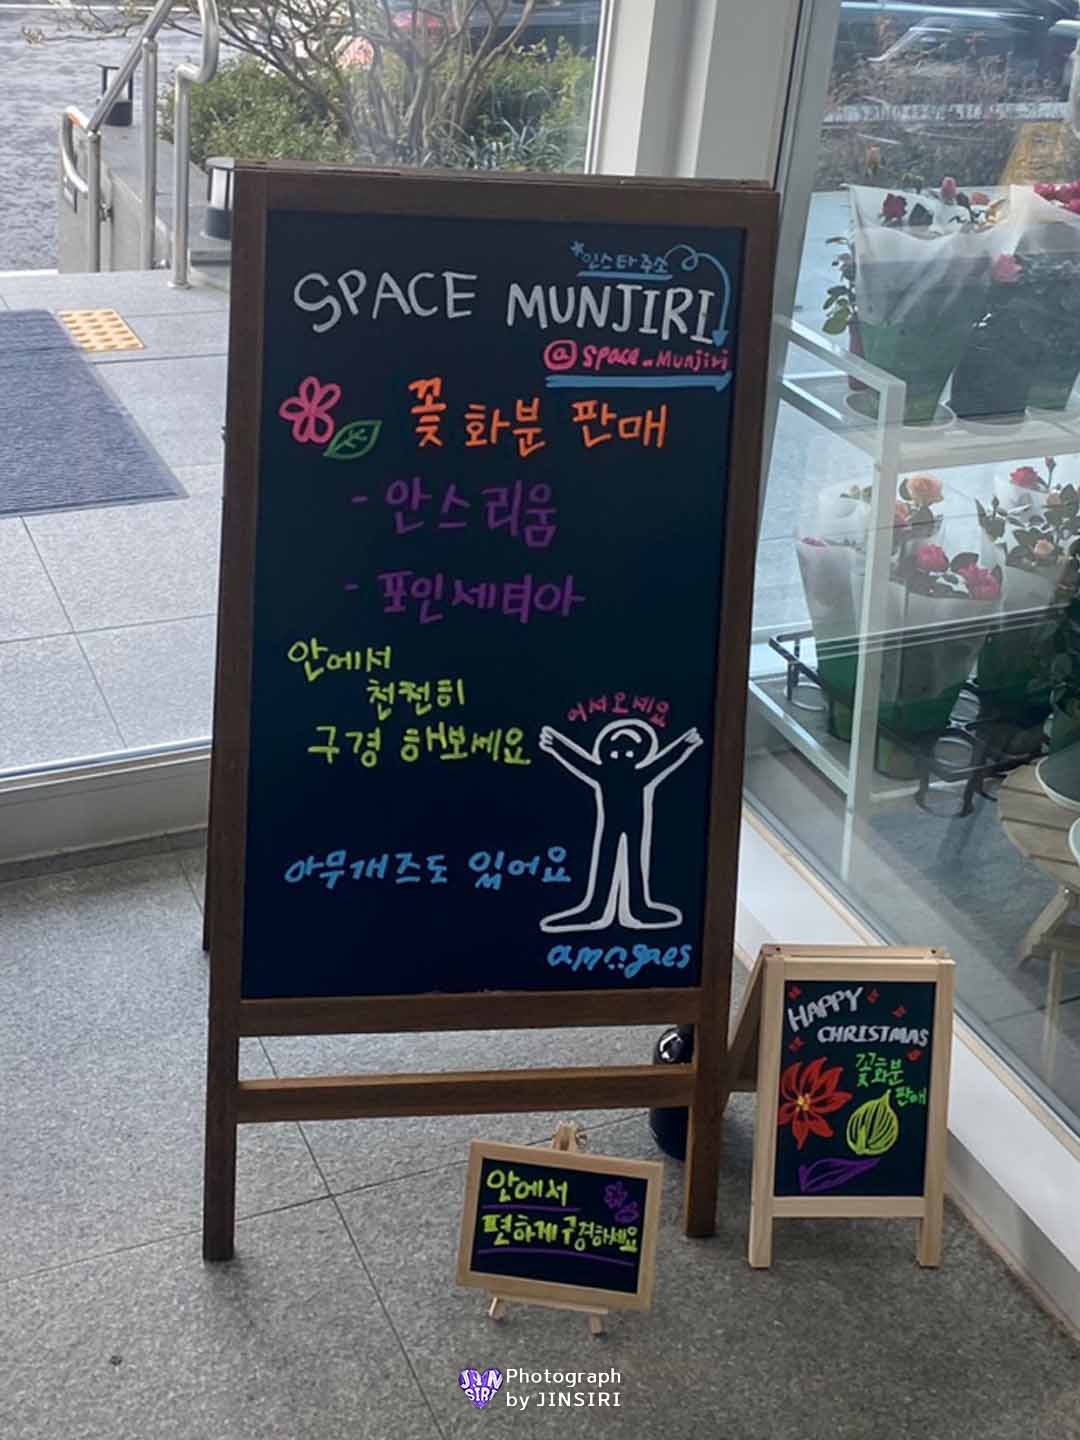 *인스타주소
SPACE MUNJIRI
@space_Munjiri
꽃 화분 판매
- 안스리움
- 포인세텨아
안에서
천천히
구경 해보세요
어서오세요
아무개즈도 있어요
amogaes
HAPPY
CHRISTMAS
꽃화분
판매
안에서
편하게 구경하세요
JIN
SIRI
Photograph
by JINSIRI